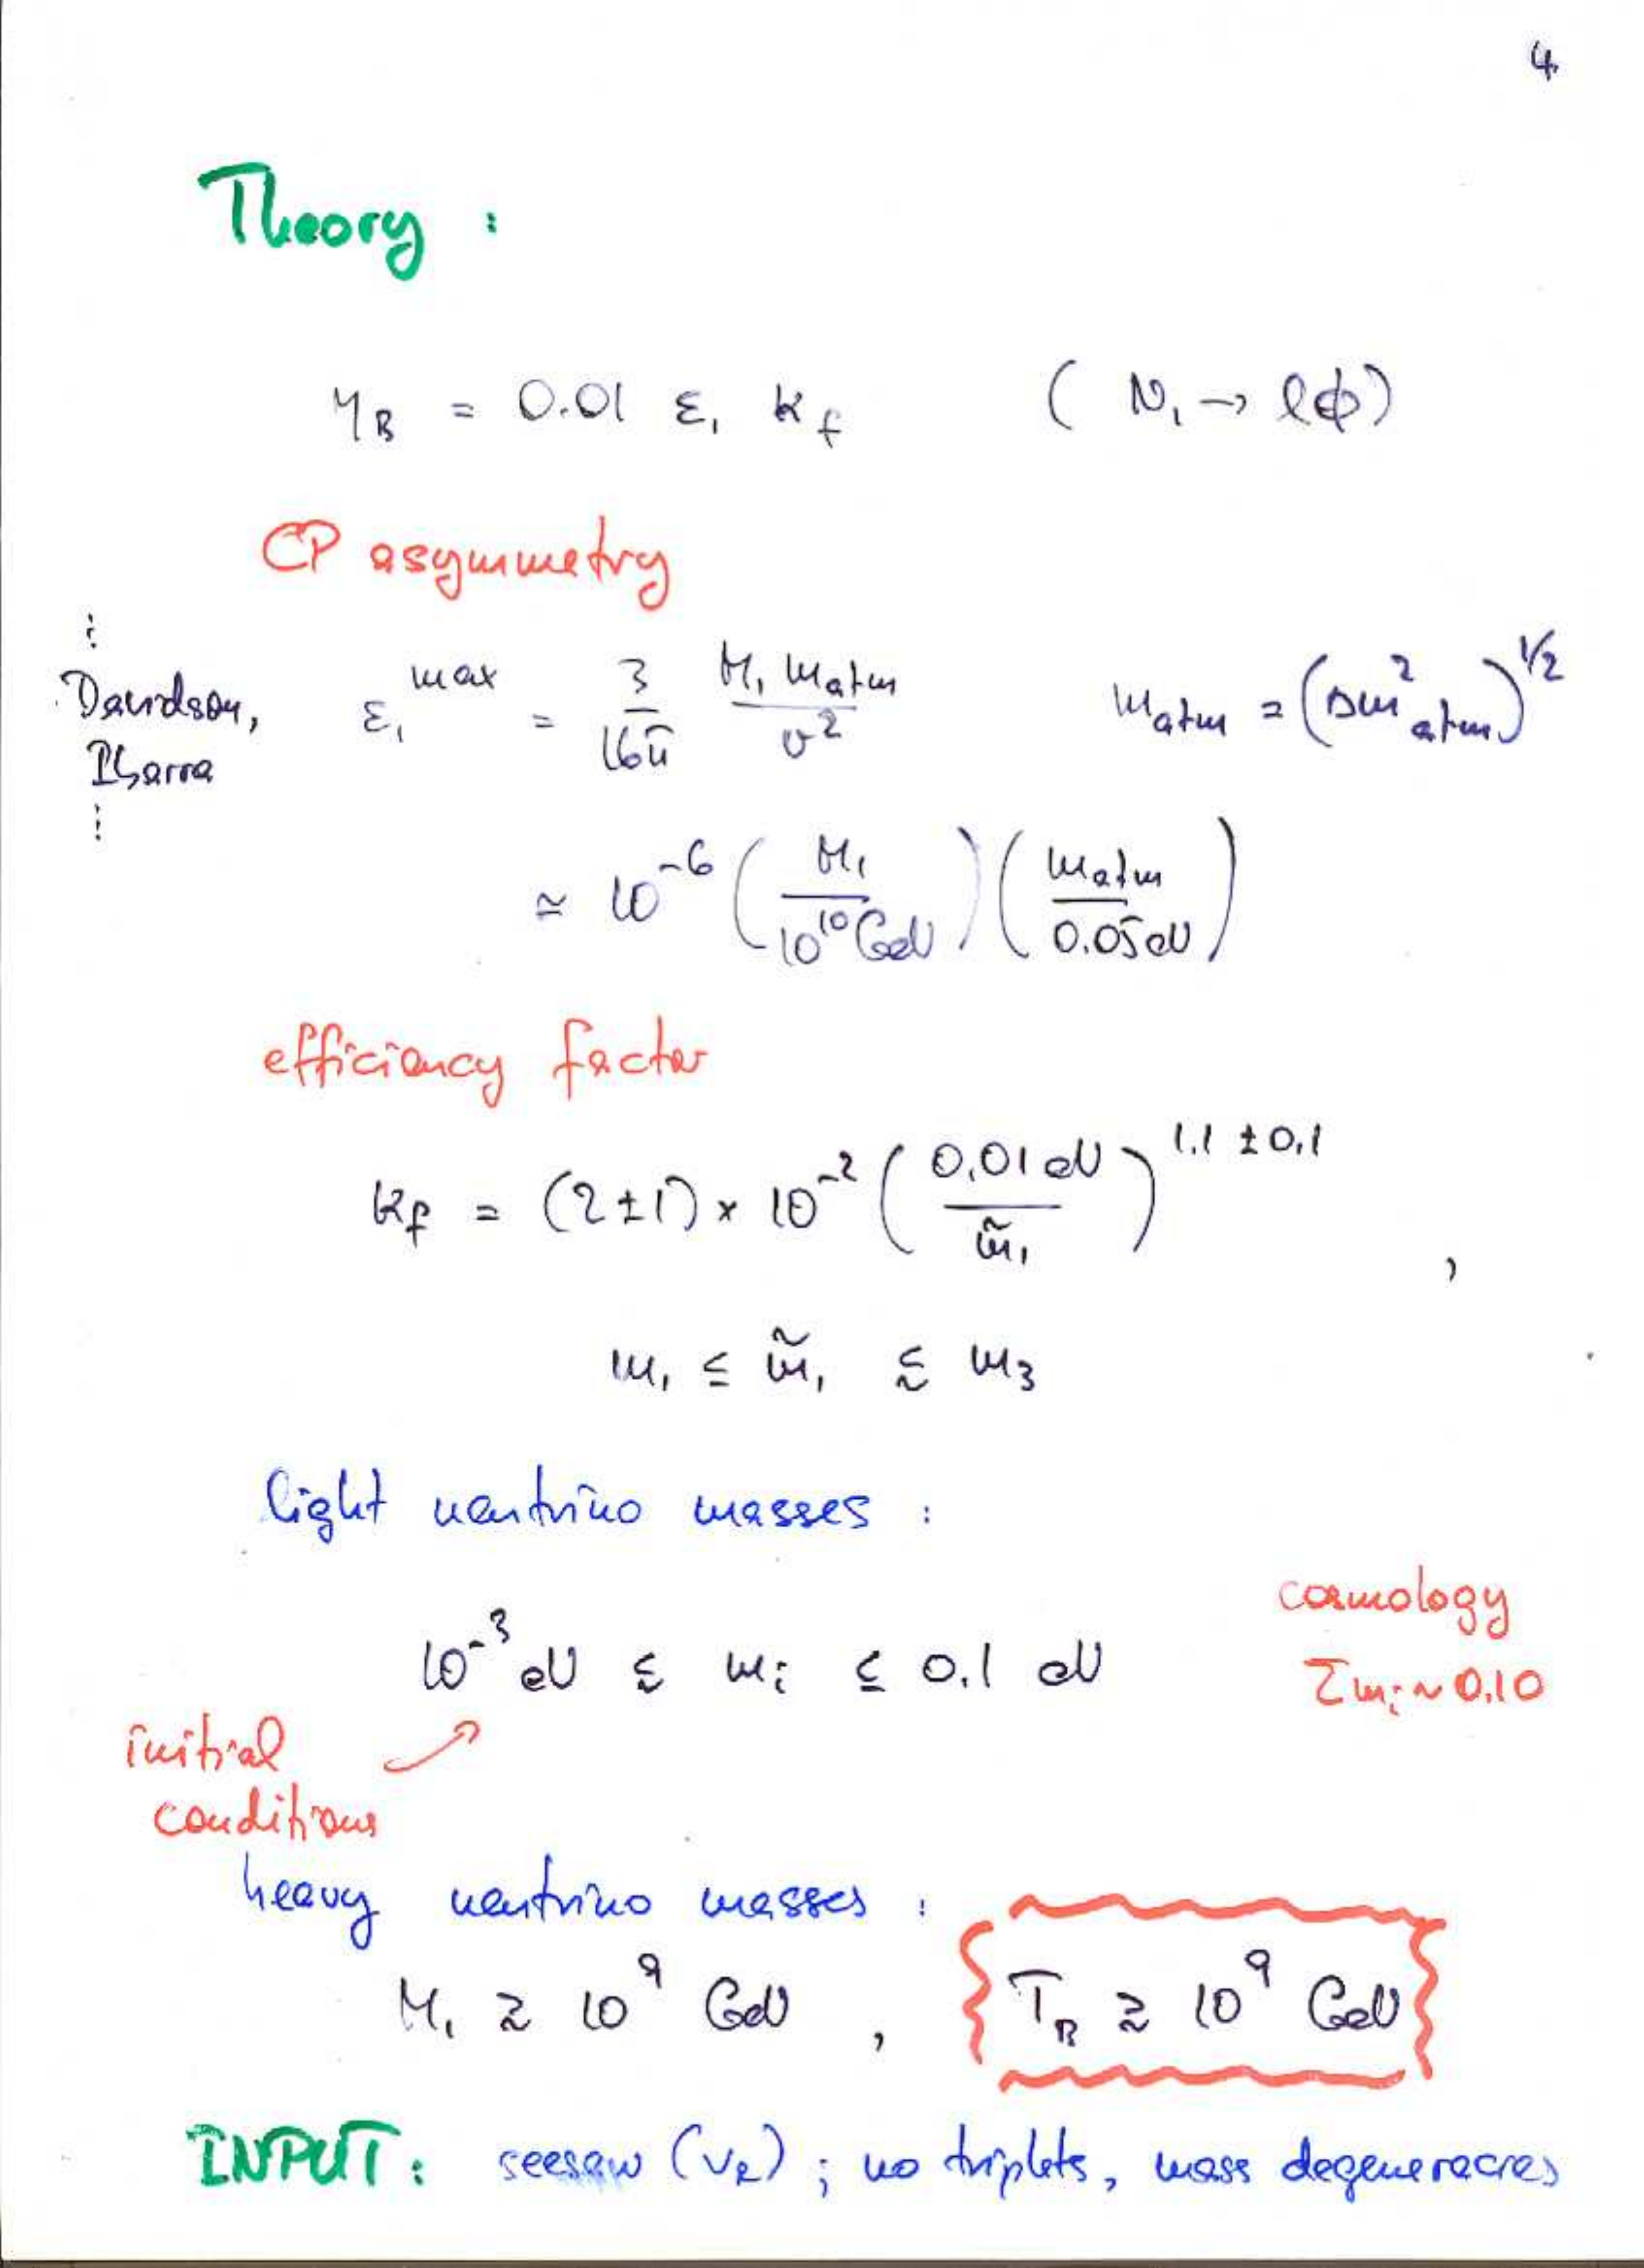 4
Theory :
η_B = 0.01 ε₁ κ_f ( N₁ → lϕ)
CP asymmetry
⋮
Davidson,
Ibarra
⋮
ε₁^max = 3/16π M₁ m_atm/v² m_atm = (Δm²_atm)^1/2
≃ 10⁻⁶ (M₁/10¹⁰ GeV) (m_atm/0.05 eV)
efficiency factor
κ_f = (2 ± 1) × 10⁻² (0.01 eV/m̃₁)^1.1 ± 0.1 ,
m₁ ≤ m̃₁ ≲ m₃
light neutrino masses :
cosmology
10⁻³ eV ≲ m_i ≤ 0.1 eV Σm_i ~ 0.10
initial
conditions
heavy neutrino masses :
M₁ ≳ 10⁹ GeV , T_B ≳ 10⁹ GeV
INPUT: seesaw (ν_R) ; no triplets, mass degeneracies